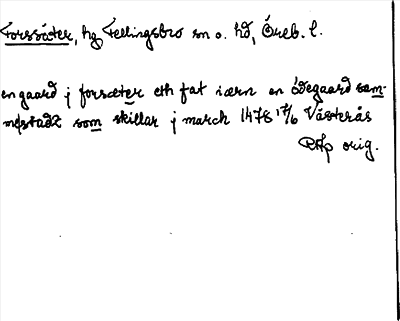 Forssäter, hg Fellingsbro sn o. hd, Öreb. l.
en gaard j forsæter eth fat iærn en ødegaard sam-
mestadz som skillar j march 1478 17/6 Västerås
RAp orig.